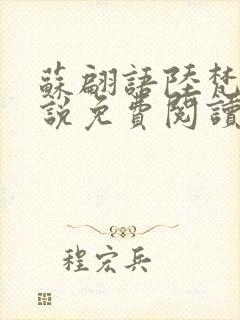 蘇翩語陸梵
說免費閱讀
程宏兵